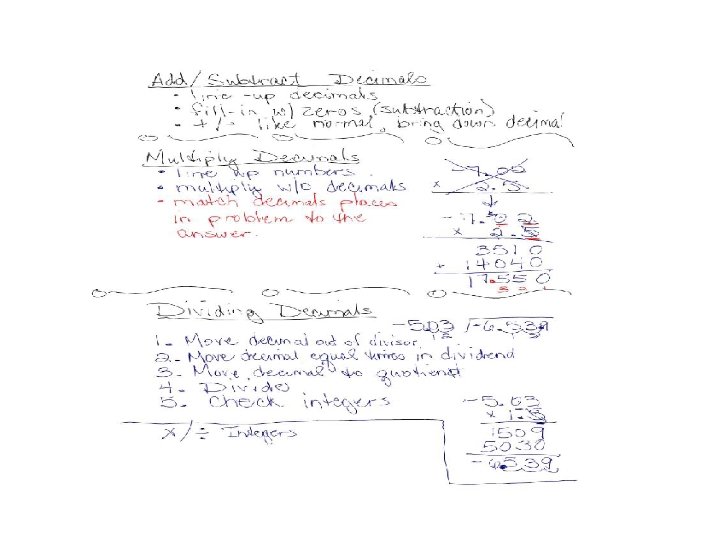 Add/Subtract Decimals
• line-up decimals
• fill-in w/ zeros (subtraction)
• +/- like normal, bring down decimal
Multiply Decimals
• line up numbers.
• multiply w/o decimals
• match decimals places
in problem to the
answer.
× 2.5
× 2.5
3510
+ 14040
17.550
Dividing Decimals
1- Move decimal out of divisor.
2- Move decimal equal times in dividend
3- Move decimal to quotient
4- Divide
5- Check integers
-5.03
× 1.3
1509
5030
-6.539
×/÷ Integers